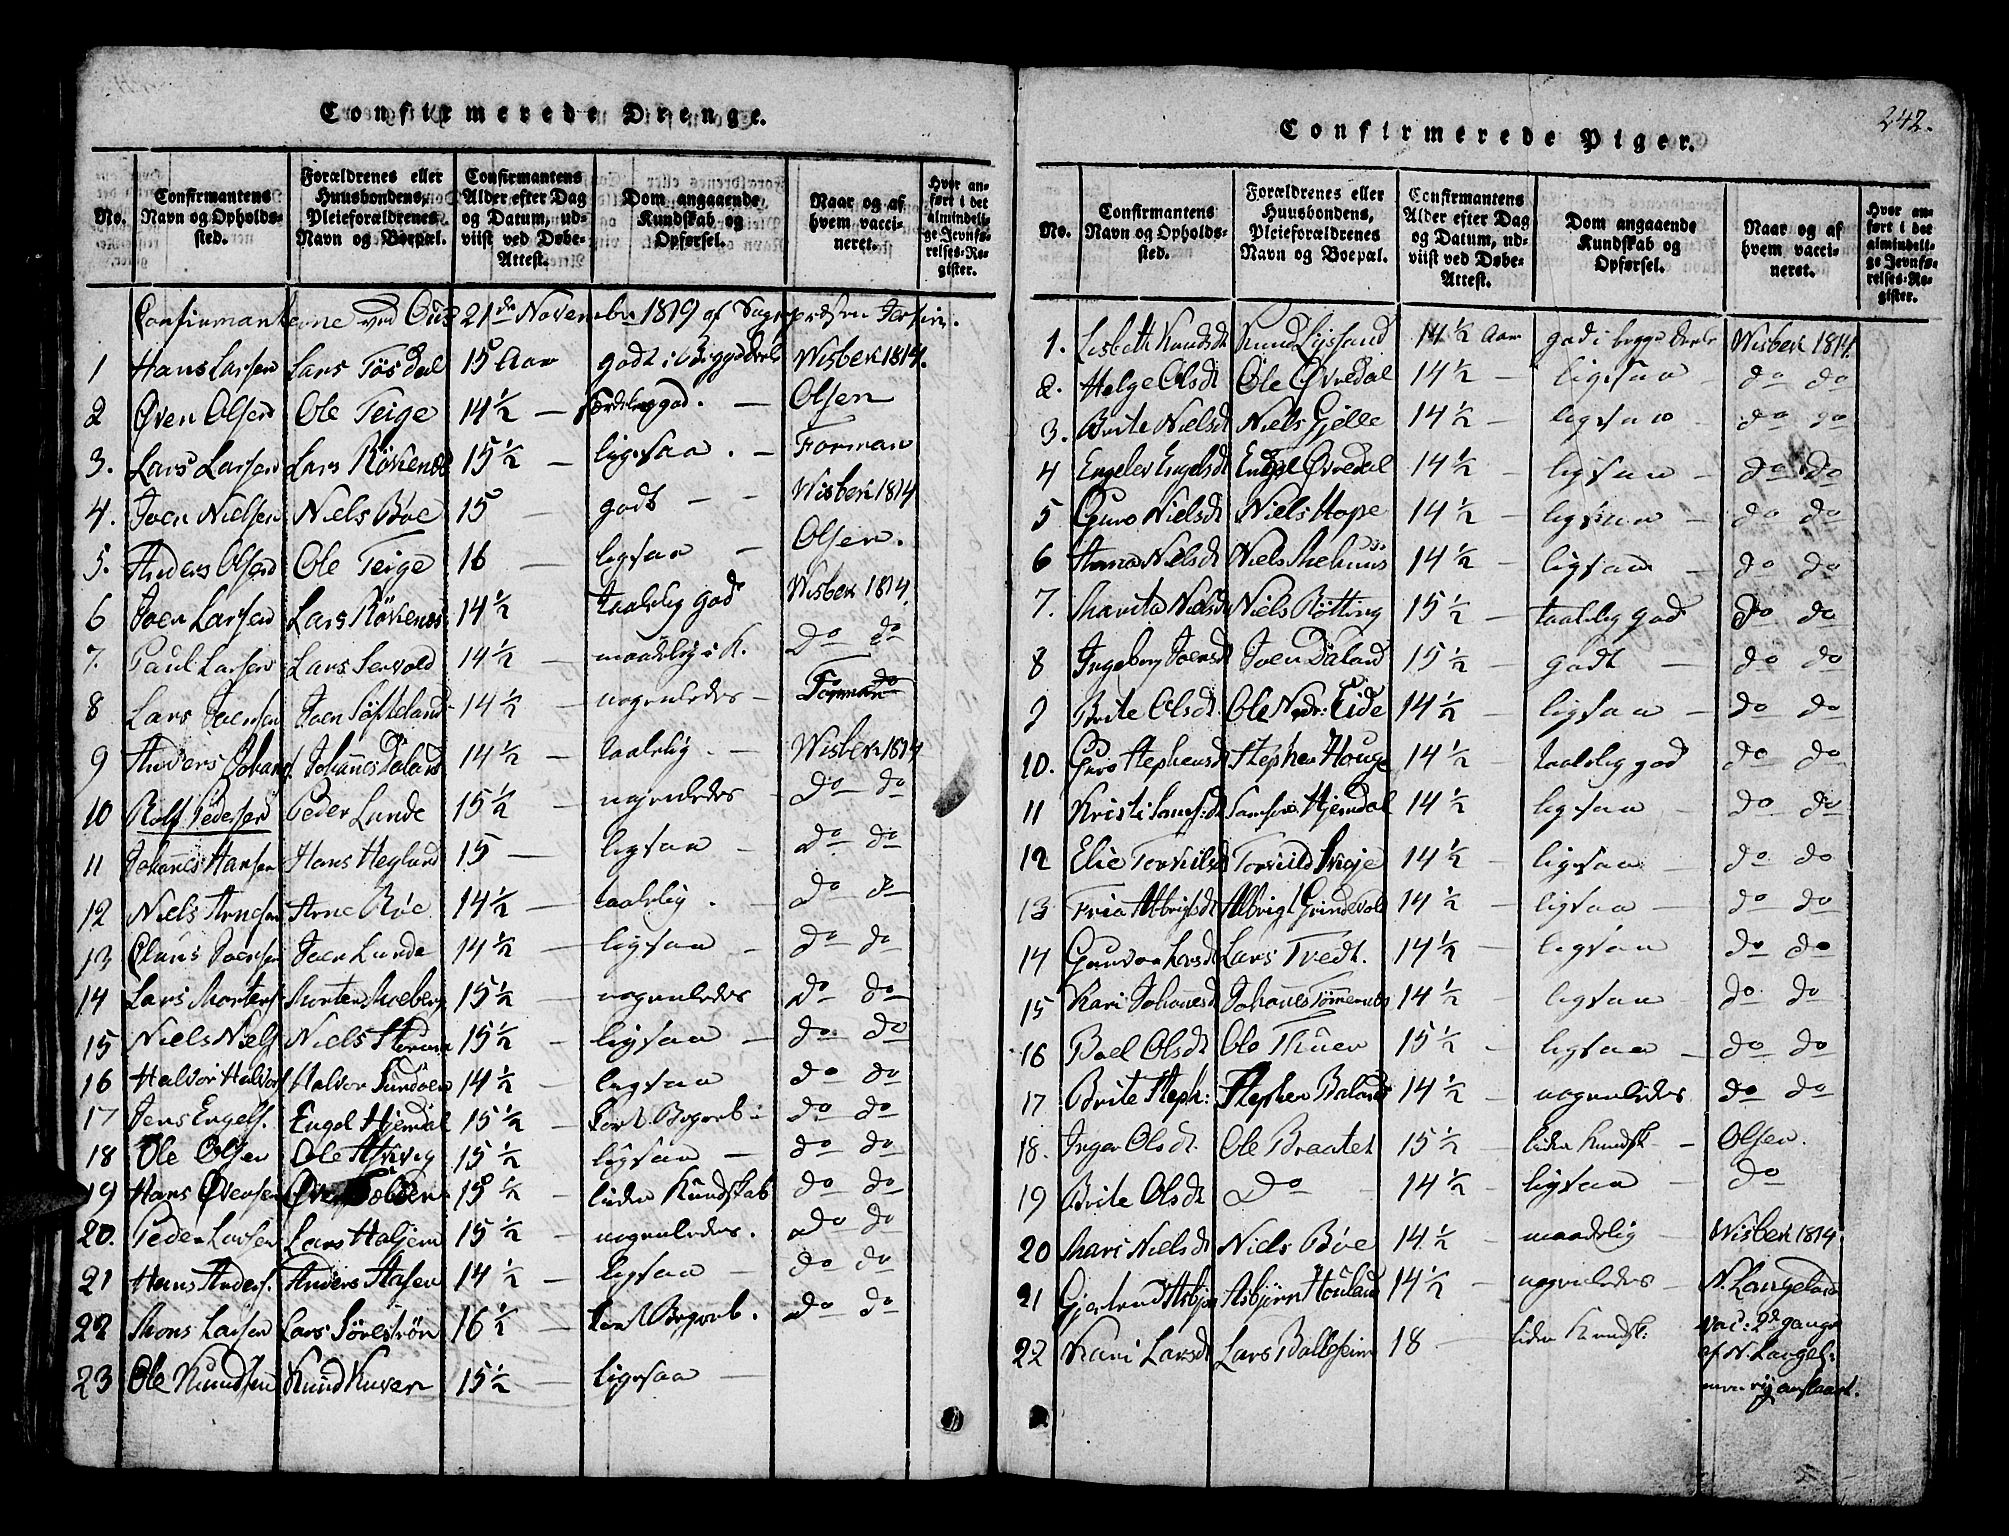 Confirmerede Drenge.
No.
Confirmantens Navn og Opholds-sted.
Forældrenes eller Huusbondens, Pleieforældrenes Navn og Boepæl.
Confirmantens Alder efter Dag og Datum, ud-viist ved Døbe-Attest.
Dom angaaende Kundskab og Opførsel.
Naar og af hvem vacci-neret.
Hvor an-ført i det almindeli-ge Jevnfø-relses-Re-gister.
Confirmanterne ved Ous 21de November 1819 af Sognepræsten
1 Hans Larsen Lars Tøsdal 15 Aar godt i begge Deele Wisbek 1814.
2 Øven Olsen Ole Teige 14½ — god. — Olsen
3. Lars Larsen Lars Røkenæs 15½ — ligesaa. — Forman
4. Joen Nielsen Niels Bøe 15 — godt — — Wisbek 1814
5. Anders Olsen Ole Teige 16 — ligesaa — Olsen.
6 Joen Larsen Lars Røkenæs 14½ taalelig god Wisbek 1814.
7. Paul Larsen Lars Servold 14½ — maadelig i K. do do
8 Lars Joensen Joen Søfteland 14½ — nogenledes — do
9 Anders Johans. Johannes Døland 14½ — taalelig. — Wisbek 1814
10 Rolf Pedersen Peder Lunde 15½ nogenledes — do do
11 Johannes Hansen Hans Heglund 15 — ligesaa — do do
12 Niels Arnesen Arne Røe 14½ — taalelig. — do do
13 Claus Joensen Joen Lunde 14½ — ligesaa — do do
14 Lars Mortens. Morten Moberg 15½ — nogenledes do do
15 Niels Niels. Niels 15½ — ligesaa — do do
16 Halvor Halvors. Halvor Sundøen 14½ — ligesaa do do
17 Jens Engels. Engel Hjemdal 15½ — kort Begreb: do do
18 Ole Olsen Ole 15½ — ligesaa — do do
19 Hans Øvensen Øven 15½ — liden Kundskab do do
20. Peder Larsen Lars Haljem 15½ — nogenledes. do do
21 Hans Anders. Anders 14½ — ligesaa — do do
22 Mons Larsen Lars Sørestrøn 16½ — kort Begreb. do do
23 Ole Knudsen Knud Kuven 15½ — ligesaa —
242.
Confirmerede Piger.
No.
Confirmantens Navn og Opholds-sted.
Forældrenes eller Huusbondens, Pleieforældrenes Navn og Boepæl.
Confirmantens Alder efter Dag og Datum, ud-viist ved Døbe-Attest.
Dom angaaende Kundskab og Opførsel.
Naar og af hvem vacci-neret.
Hvor an-ført i det almindeli-ge Jevnfø-relses-Re-gister.
1. Lisbeth Knudsdt Knud Lysand 14½ Aar god i begge Deele Wisbek 1814.
2. Helge Olsdt Ole Øvredal 14½ — ligesaa do do
3. Brite Nielsdt Niels Gjelle 14½ — ligesaa do do
4 Engelev Engelsdt Engel Øvredal 14½ — ligesaa — do do
5 Guro Nielsdt Niels Hope 14½ — ligesaa — do do
6 Anna Nielsdt Niels 14½ — ligesaa — do do
7. Marita Nielsdt Niels Røtting 15½ — taalelig god do do
8 Ingeborg Joensdt Joen Døland 15½ — godt — do do
9 Brite Olsdt. Ole Nedr: Eide 14½ — ligesaa — do do
10. Guro Stephensdt Stephen Houge 14½ — taalelig god do do
11 Kristi Sams:dt Samson Hjemdal 14½ — ligesaa — do do
12 Elie Torkildsdt Torkild Svoje 14½ — ligesaa do do
13 Fria Albrigtsdt Albrigt Grindevold 14½ — ligesaa — do do
14 Guro Larsdt Lars Tvedt. 14½ — ligesaa do do
15 Kari Johannesdt Johannes Tømmernæs 14½ — ligesaa do do
16 Boel Olsdt Ole Thuen 15½ — ligesaa — do do
17 Brite Steph: Stephen Baland 14½ — nogenledes do do
18. Inger Olsdt. Ole Braatet 15½ — liden Kundsk — Olsen.
19 Brite Olsdt Do — 14½ — ligesaa — do
20 Mari Nielsdt Niels Bøe 14½ — maadelig — Wisbek 1814.
21 Gjertrud Asbjørn Houland 14½ — nogenledes — N. Langeland
22 Kari Larsdt Lars Ballesem 18 liden Kundsk: vac: 2de gange
af N. Langel:
men ej anslaaet.